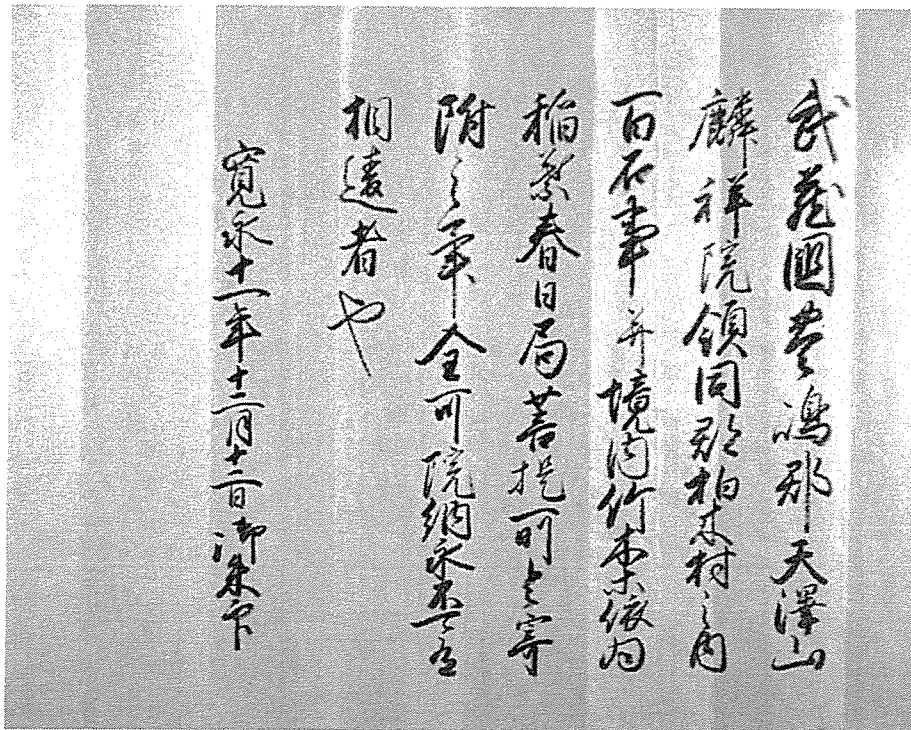 武蔵國豊嶋郡天澤山
麟祥院領同郡柏木村之内
百石事并境内竹木等依為
稲葉春日局菩提所令寄
附之畢全可院納永不可有
相違者也
寛永十一年十二月十二日御朱印